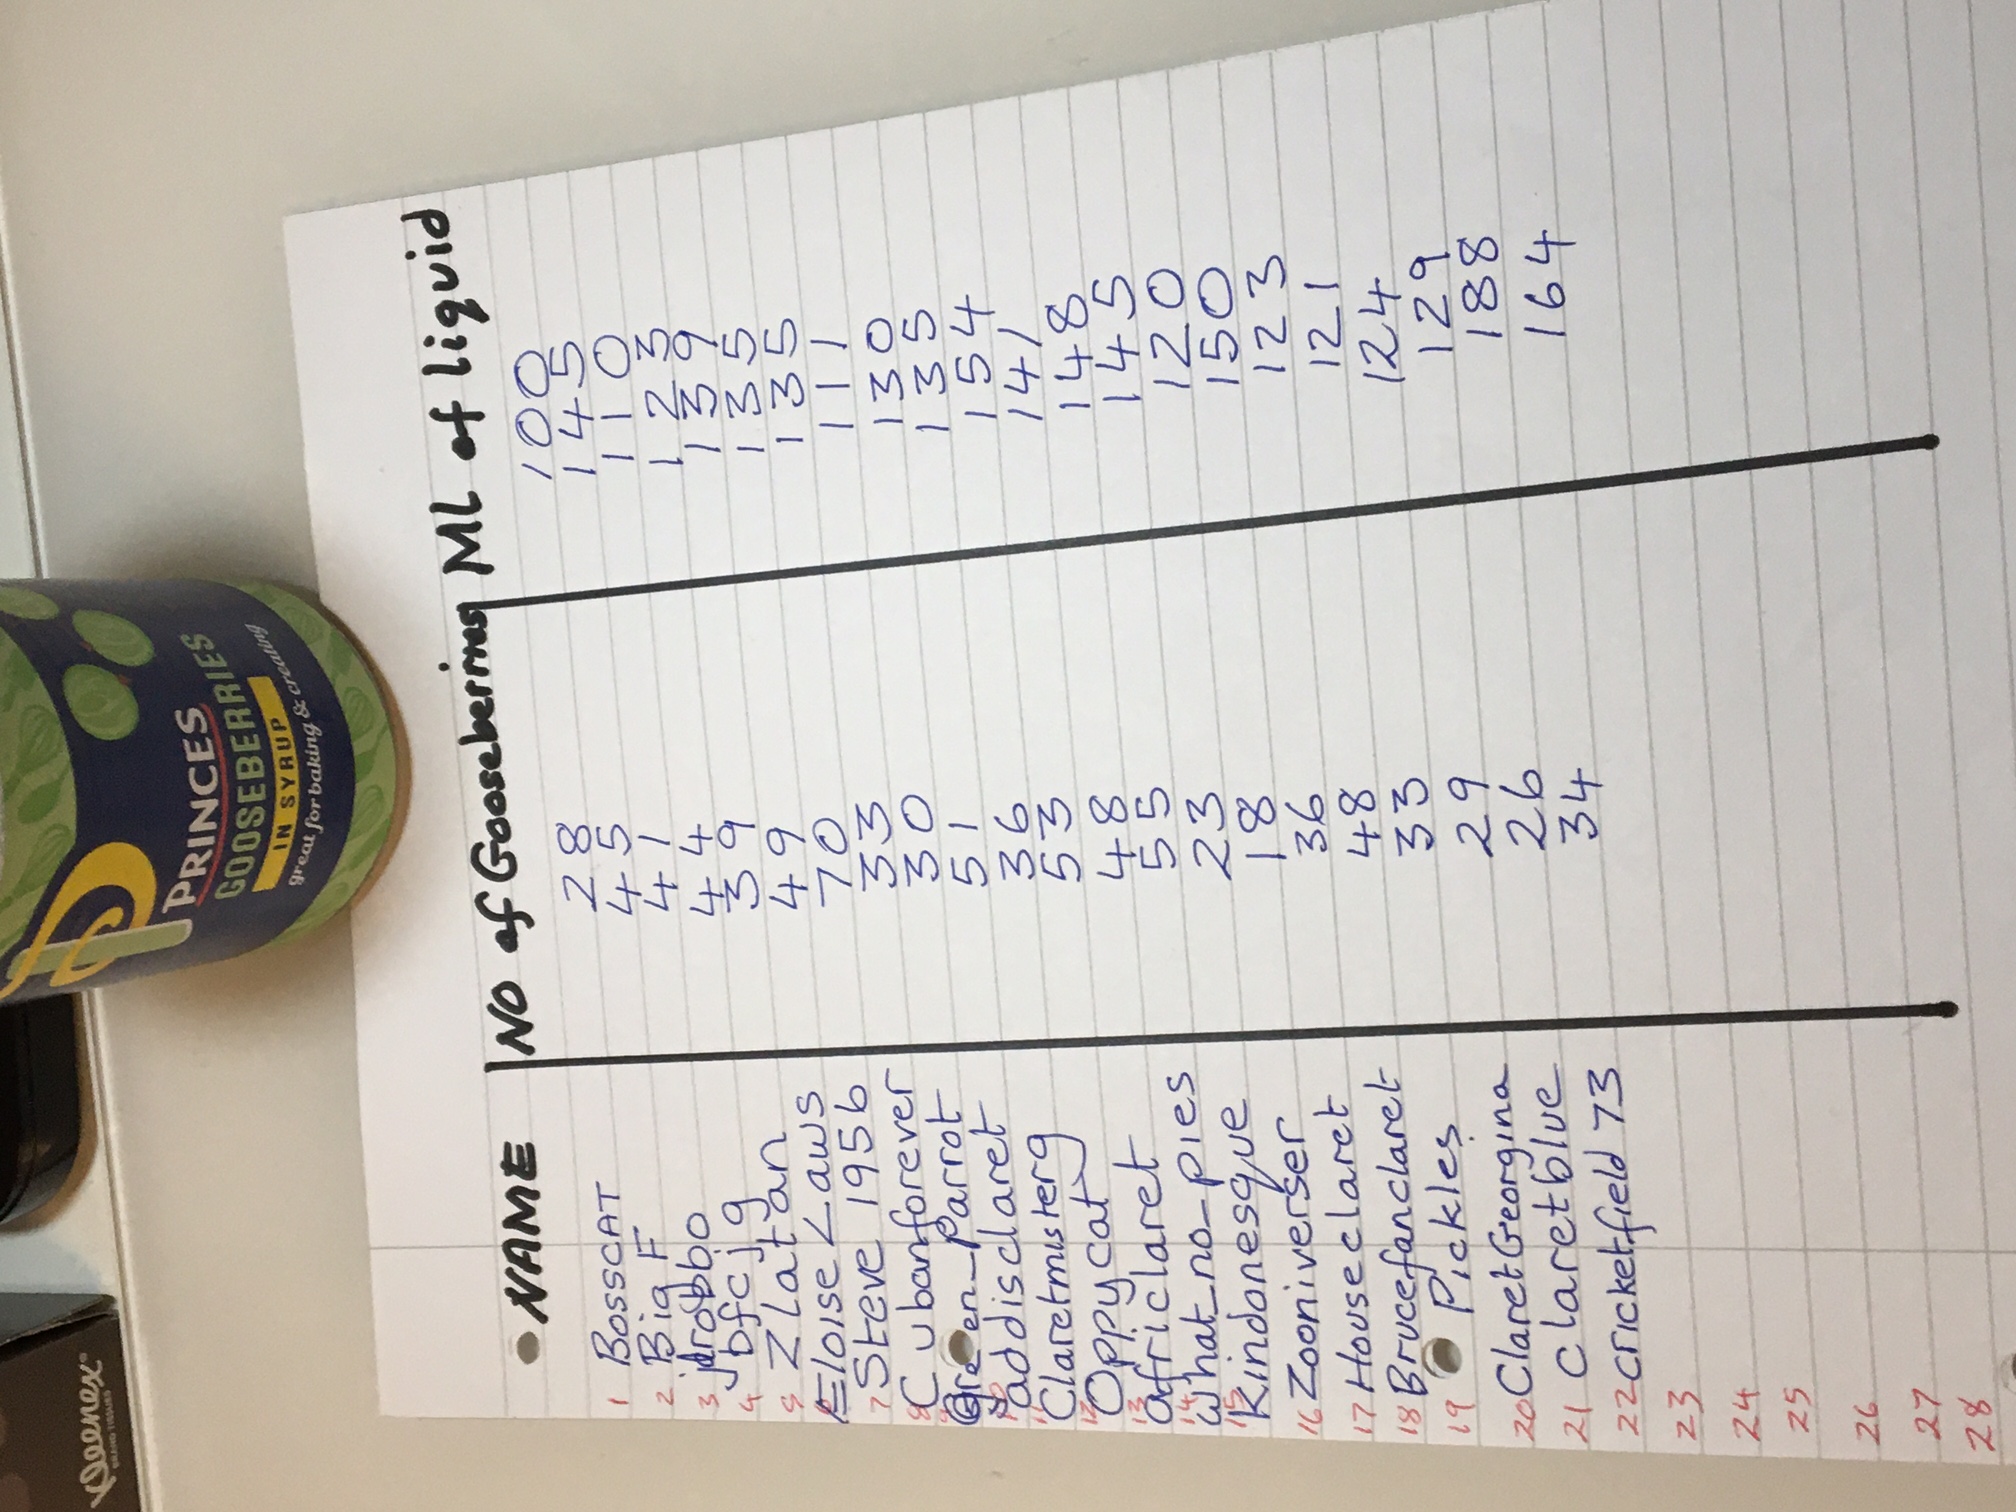 PRINCES
GOOSEBERRIES
IN SYRUP
great for baking & creating
Kleenex
NAME NO of Gooseberries ML of liquid
1 BossCAT 28 100
2 Big F 45 145
3 jrobbo 41 110
4 bfcjg 44 123
5 Zlatan 39 139
6 Eloise Laws 49 135
7 Steve 1956 70 135
8 Cubanforever 33 111
9 Green_Parrot 30 130
10 addisclaret 51 135
11 Claretmisterg 36 154
12 Oppycat 53 141
13 africlaret 48 148
14 What_no_pies 55 145
15 Kindonesque 23 120
16 Zooniverser 18 150
17 Houseclaret 36 123
18 Brucefanclaret 48 121
19 Pickles 33 124
20 ClaretGeorgina 29 129
21 Claretblue 26 188
22 cricketfield 73 34 164
23
24
25
26
27
28